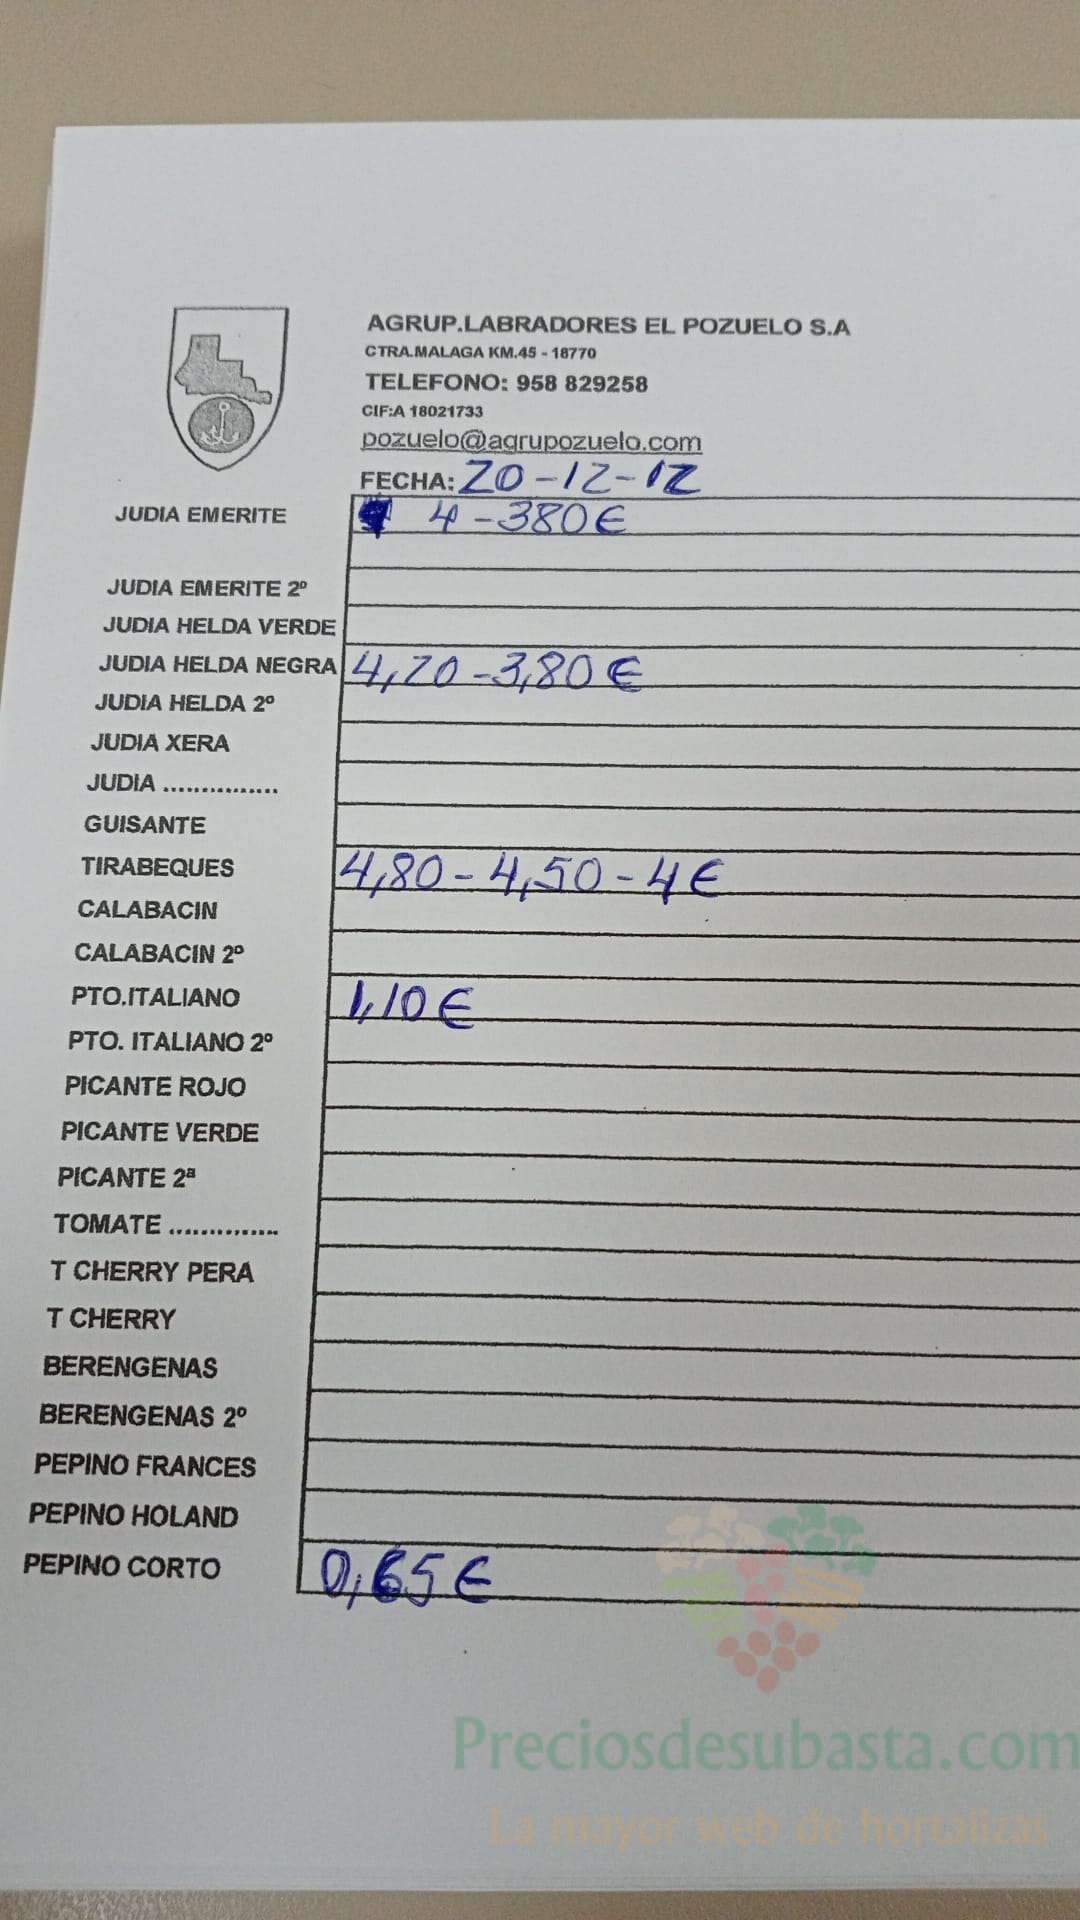 AGRUP.LABRADORES EL POZUELO S.A
CTRA.MALAGA KM.45 - 18770
TELEFONO: 958 829258
CIF:A 18021733
pozuelo@agrupozuelo.com
FECHA: 20-12-12
JUDIA EMERITE 4 - 380€
JUDIA EMERITE 2º
JUDIA HELDA VERDE
JUDIA HELDA NEGRA 4,20 - 3,80 €
JUDIA HELDA 2º
JUDIA XERA
JUDIA ...............
GUISANTE
TIRABEQUES 4,80 - 4,50 - 4 €
CALABACIN
CALABACIN 2º
PTO.ITALIANO 1,10 €
PTO. ITALIANO 2º
PICANTE ROJO
PICANTE VERDE
PICANTE 2ª
TOMATE ..............
T CHERRY PERA
T CHERRY
BERENGENAS
BERENGENAS 2º
PEPINO FRANCES
PEPINO HOLAND
PEPINO CORTO 0,65 €
Preciosdesubasta.com
La mayor web de hortalizas